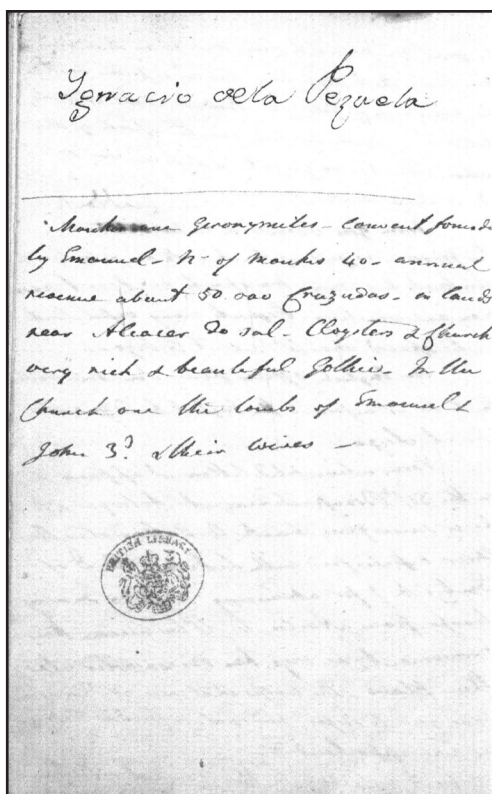 Ignacio de la Pezuela
Monks are Geronymites - Convent founded
by Emanuel - No of Monks 40 - annual
revenue about 50.000 Cruzadas - in lands
near Alcacer do sal - Cloysters & Church
very rich & beautiful Gothic - In the
Church are the tombs of Emanuel &
John 3d & their wives -
BRITISH LIBRARY